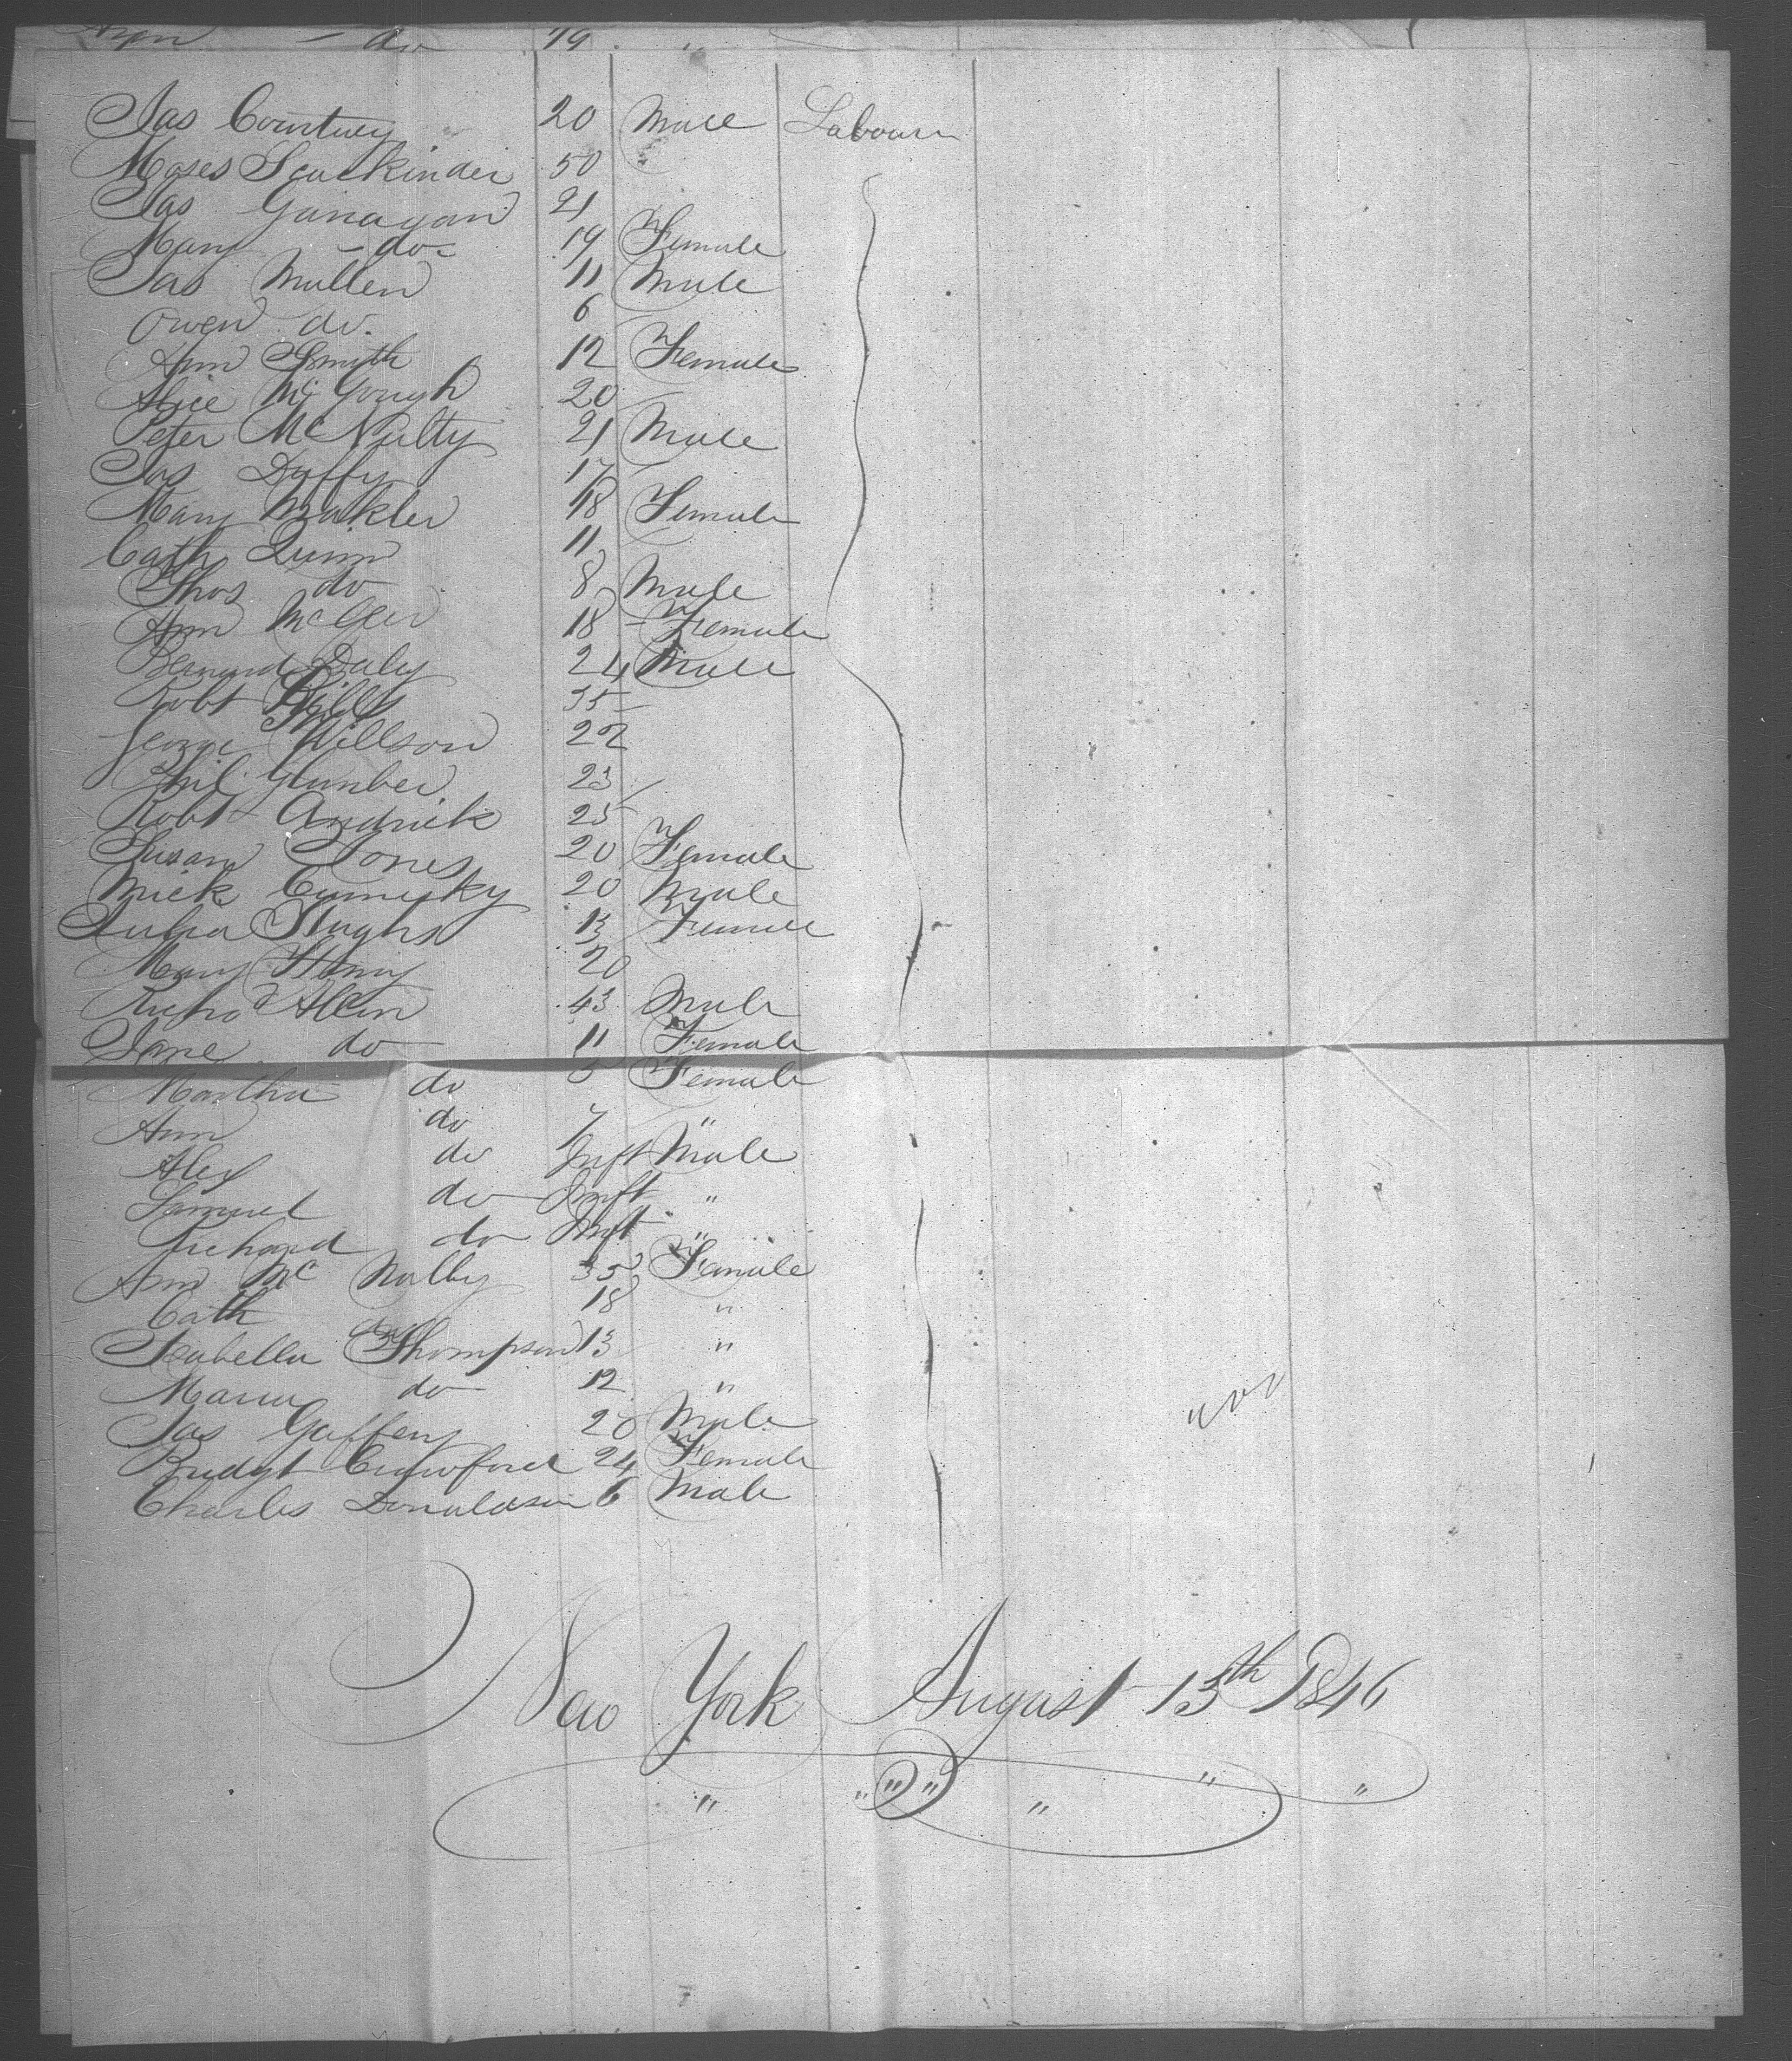 Ann - do 19 "
Jas Courtney 20 Male Labourer
Moses Scurkinder 50
Jas Ganagan 21
Mary - do - 19 Female
Jas Mullen 11 Male
Owen do. 6
Ann Smyth 12 Female
Alice McGough 20
Peter McNulty 21 Male
Jas Duffy 17
Mary Makler 18 Female
Cath Quinn 11
Thos do 8 Male
Ann 18 - Female
Bernard Daly 24 Male
Robt 35
George Willson 22
Phil Glumber 23
Robt Andrick 25
Susan Jones 20 Female
Mick Cumisky 20 Male
Hughs 13 Female
Mary Henry 20
Richd Allen 43 Male
Jane do 11 Female
Martha do 5 Female
Ann do 7 "
Alex do Inft Male
Samuel do Inft "
Richard do Inft "
Ann Mc Nulty 35 Female
Cath do 18 "
Isabella Thompson 13 "
Maria do 12 "
Jas Gaffeny 20 Male
Bridgt Crawford 24 Female
Charles Donaldson 6 Male
New York August 13th 1846
" " " " " " "